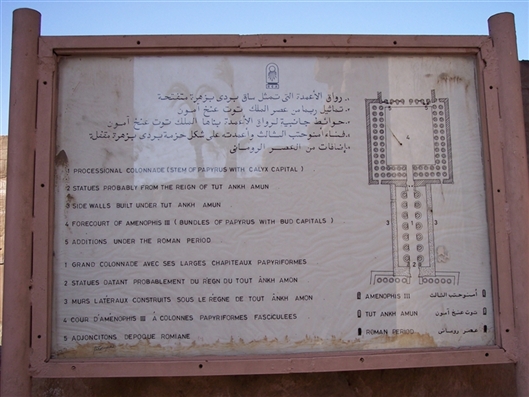 رواق الأعمدة التى تمثل ساق بردى بزهرة متفتحة
تماثيل ربما من عصر الملك توت عنخ آمون
حوائط جانبية لرواق الأعمدة بناها الملك توت عنخ آمون
فناء أمنوحتب الثالث وأعمدته على شكل حزمة بردى بزهرة مقفلة
إضافات من العصر الرومانى
1 PROCESSIONAL COLONNADE (STEM OF PAPYRUS WITH CALYX CAPITAL)
2 STATUES PROBABLY FROM THE REIGN OF TUT ANKH AMUN
3 SIDE WALLS BUILT UNDER TUT ANKH AMUN
4 FORECOURT OF AMENOPHIS III (BUNDLES OF PAPYRUS WITH BUD CAPITALS)
5 ADDITIONS UNDER THE ROMAN PERIOD
1 GRAND COLONNADE AVEC SES LARGES CHAPITEAUX PAPYRIFORMES
2 STATUES DATANT PROBABLEMENT DU REGN DU TOUT ÂNKH AMON
3 MURS LATÉRAUX CONSTRUITS SOUS LE RÈGNE DE TOUT ÂNKH AMON
4 COUR D'AMENOPHIS III À COLONNES PAPYRIFORMES FASCICULEES
5 ADJONCITONS DEPOQUE ROMIANE
4
3
3
1
2
2
AMENOPHIS III أمنوحتب الثالث
TUT ANKH AMUN توت عنخ آمون
ROMAN PERIOD عصر رومانى